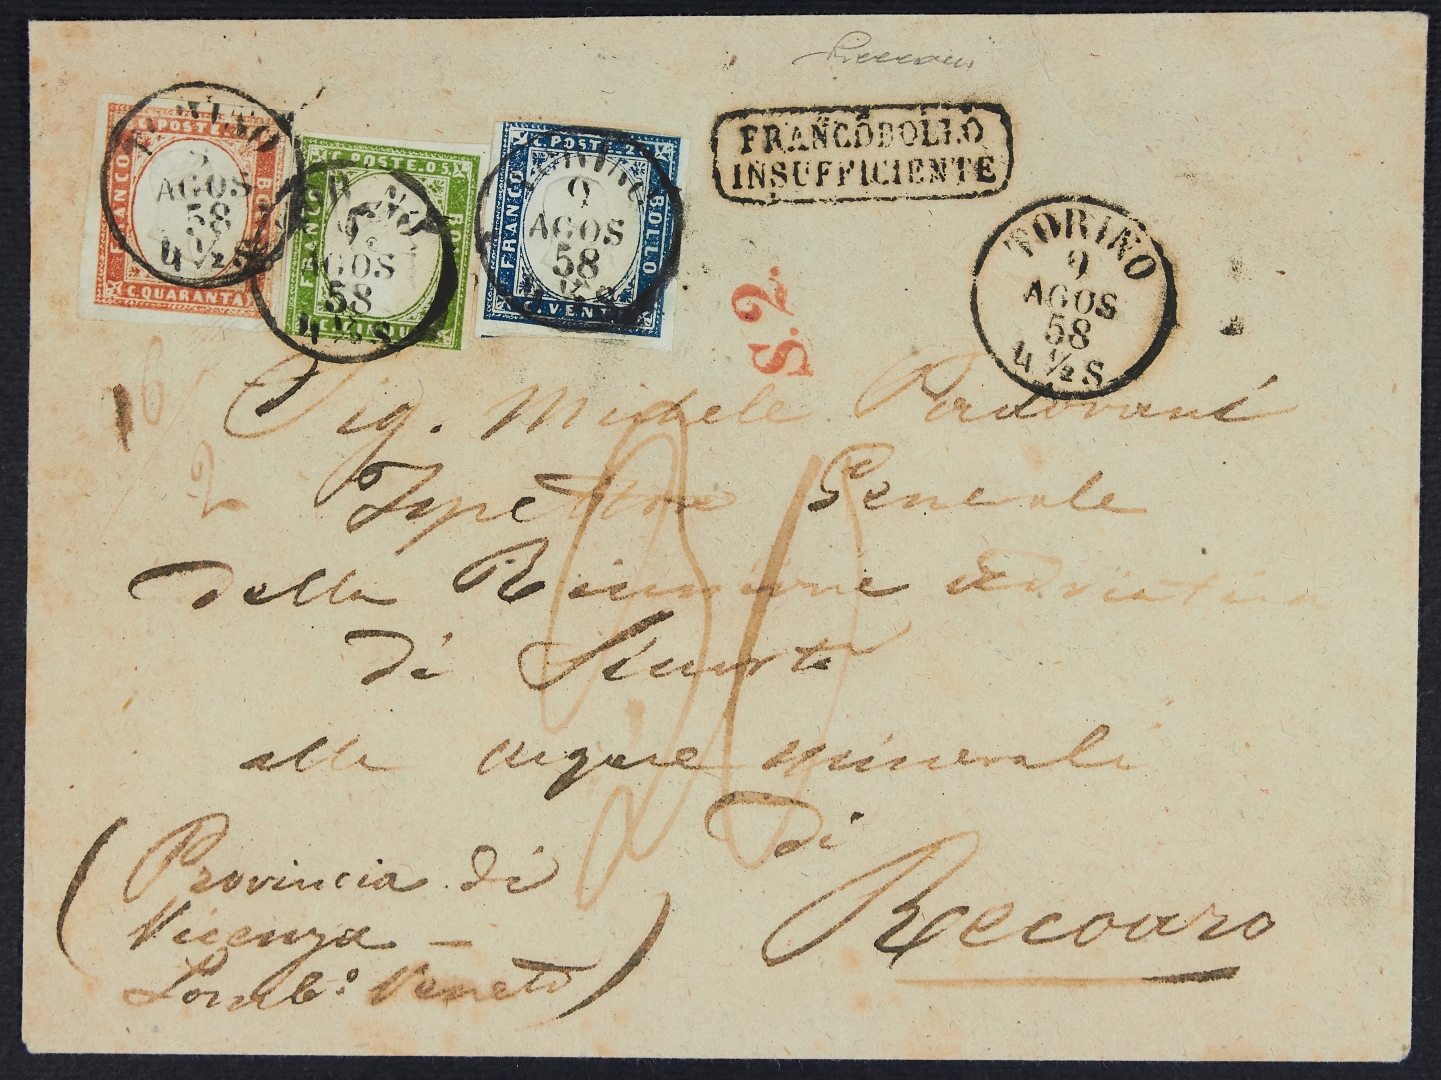 TORINO
9
AGOS
58
4 ½ S
FRANCO
BOLLO
C. POSTE
C. QUARANTA
TORINO
9
AGOS
58
4 ½ S
FRANCO
BO
C. POSTE 05
TORINO
9
AGOS
58
4 ½ S
FRANCO
BOLLO
C. POSTE 2
C. VENT
FRANCOBOLLO
INSUFFICIENTE
TORINO
9
AGOS
58
4 ½ S
S. 2.
6
2
Sig. Michele Padovani
Ispettore Generale
della Riunione Adriatica
di Sicurtà
alle acque minerali
di
Recoaro
(Provincia di
Vicenza –
Lomb.º Veneto)